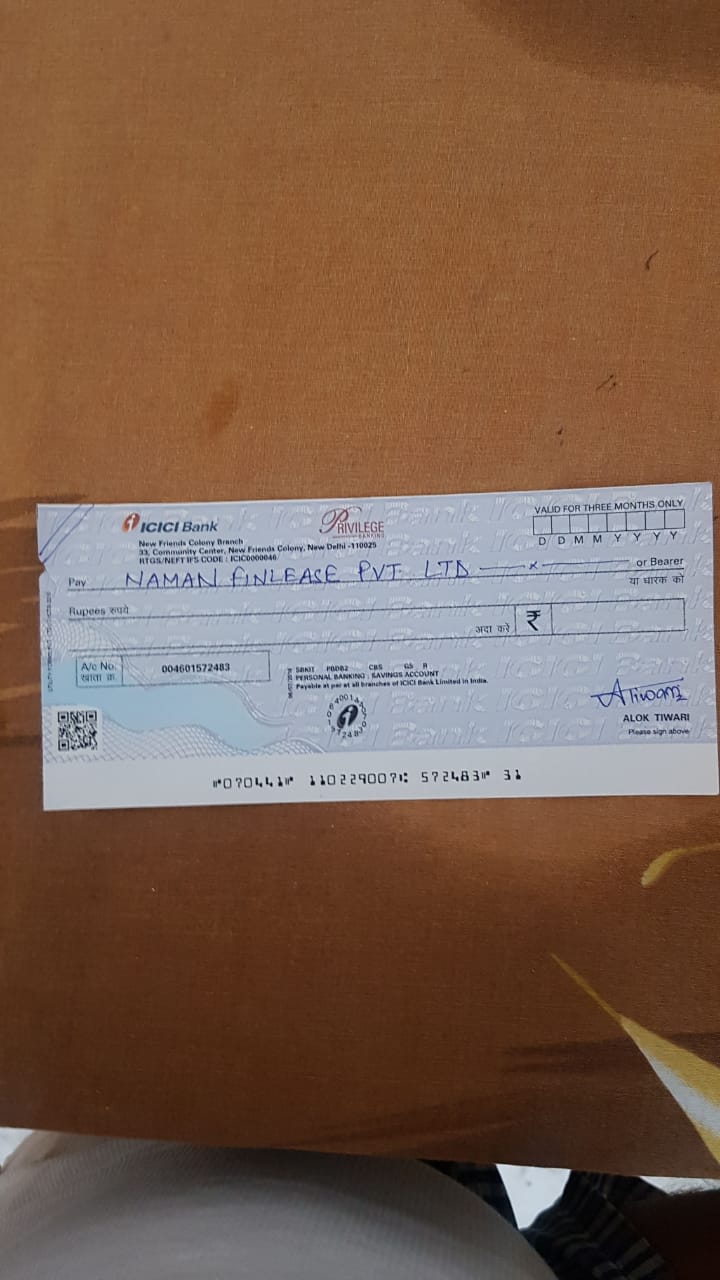 ICICI Bank
PRIVILEGE
BANKING
VALID FOR THREE MONTHS ONLY
D D M M Y Y Y Y
New Friends Colony Branch
33, Community Center, New Friends Colony, New Delhi -110025
RTGS/NEFT IFS CODE : ICIC0000046
Pay NAMAN FINLEASE PVT. LTD —x— or Bearer
या धारक को
Rupees रुपये
अदा करे ₹
A/c No. 004601572483
खाता क्र.
SBKIT PBDB2 CBS GS R
PERSONAL BANKING : SAVINGS ACCOUNT
Payable at par at all branches of ICICI Bank Limited in India.
ATiwari
ALOK TIWARI
Please sign above
⑈070441⑈ 110229007⑆ 572483⑈ 31